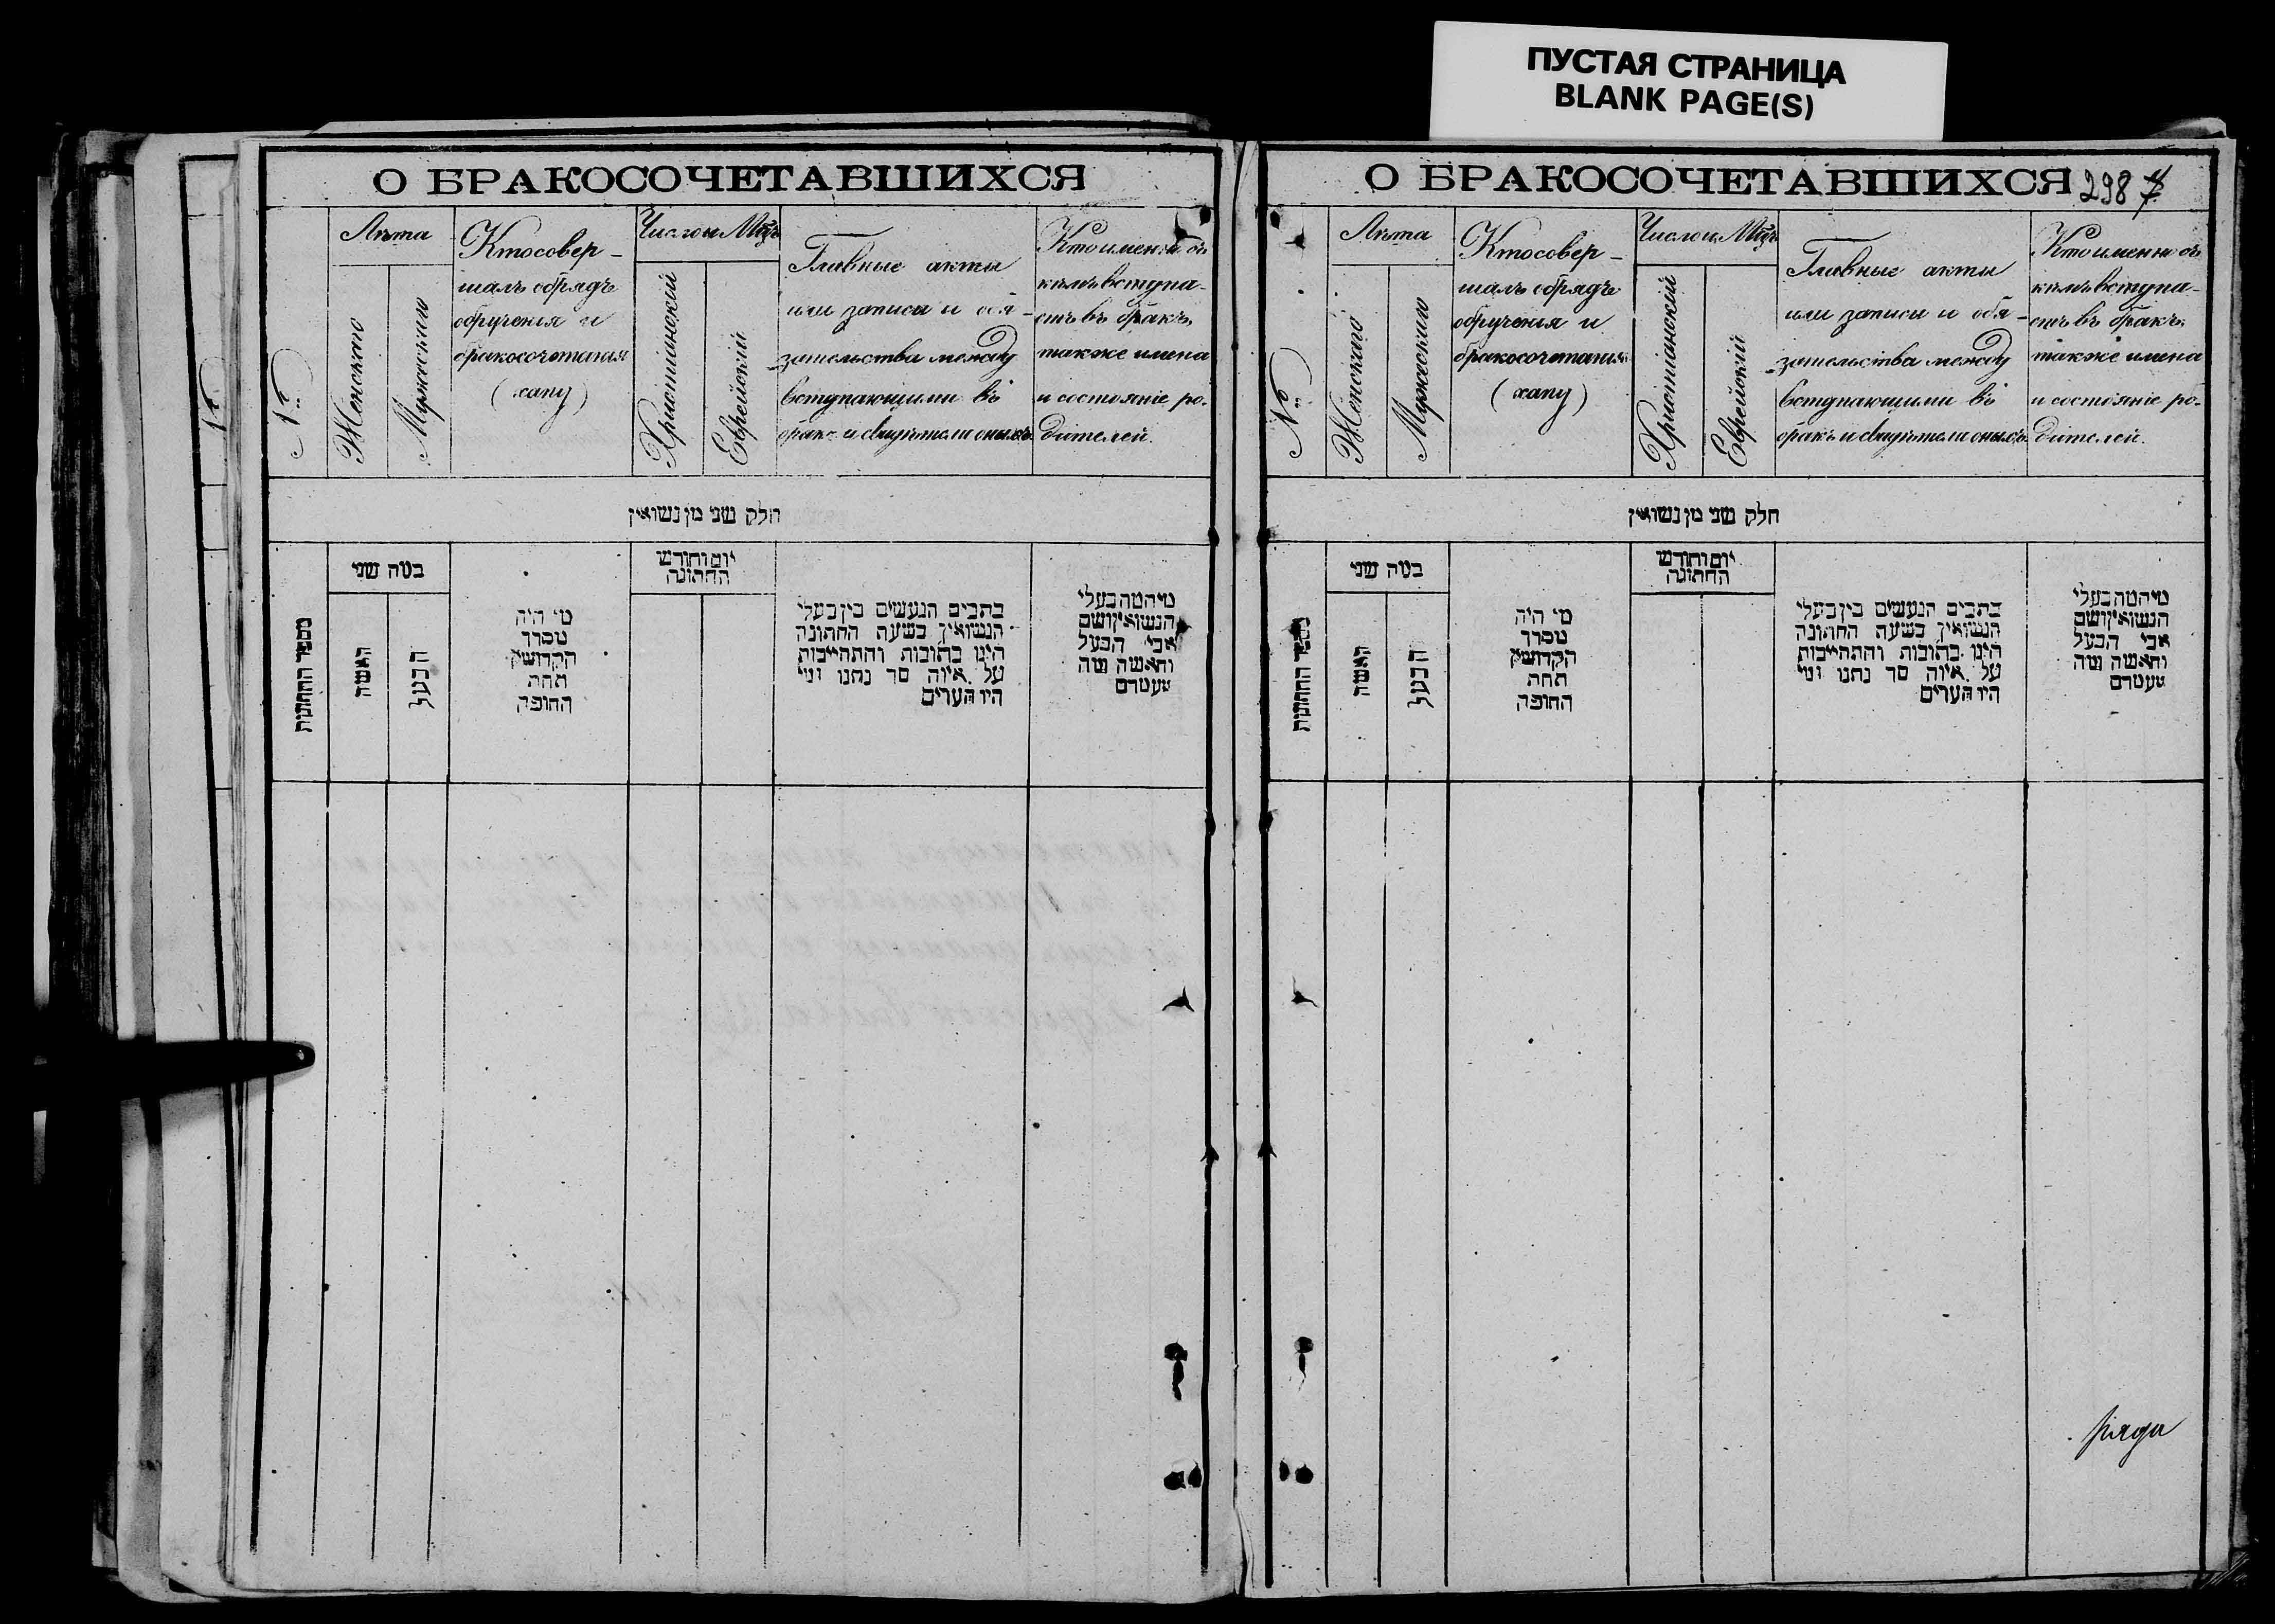 ПУСТАЯ СТРАНИЦА
BLANK PAGE(S)
О БРАКОСОЧЕТАВШИХСЯ
№
Лѣта
Женскаго
Мужескаго
Кто совер-
шалъ обрядъ
обрученія и
бракосочетанія
(хапу)
Число и Мѣцъ
Христіанскій
Еврейскій
Главные акты
или записи и обя-
зательства между
вступающими въ
бракъ и свидѣтели оныхъ
Кто именно съ
кѣмъ вступа-
етъ въ бракъ,
также имена
и состояніе ро-
дителей.
חלק שני מן נשואין
מספר החתונות
במה שני
האשה
הבעל
מי היה
מסדר
הקדושין
תחת
החופה
יום וחודש
החתונה
כתבים הנעשים בין בעלי
הנשואין בשעת החתונה
היינו כתובות והתחייבות
על איזה סך נתנו ומי
היו העדים
מי המה בעלי
הנשואין ושם
אבי הבעל
והאשה ומה
מעמדם
О БРАКОСОЧЕТАВШИХСЯ
298
№
Лѣта
Женскаго
Мужескаго
Кто совер-
шалъ обрядъ
обрученія и
бракосочетанія
(хапу)
Число и Мѣцъ
Христіанскій
Еврейскій
Главные акты
или записи и обя-
зательства между
вступающими въ
бракъ и свидѣтели оныхъ
Кто именно съ
кѣмъ вступа-
етъ въ бракъ,
также имена
и состояніе ро-
дителей.
חלק שני מן נשואין
מספר החתונות
במה שני
האשה
הבעל
מי היה
מסדר
הקדושין
תחת
החופה
יום וחודש
החתונה
כתבים הנעשים בין בעלי
הנשואין בשעת החתונה
היינו כתובות והתחייבות
על איזה סך נתנו ומי
היו העדים
מי המה בעלי
הנשואין ושם
אבי הבעל
והאשה ומה
מעמדם